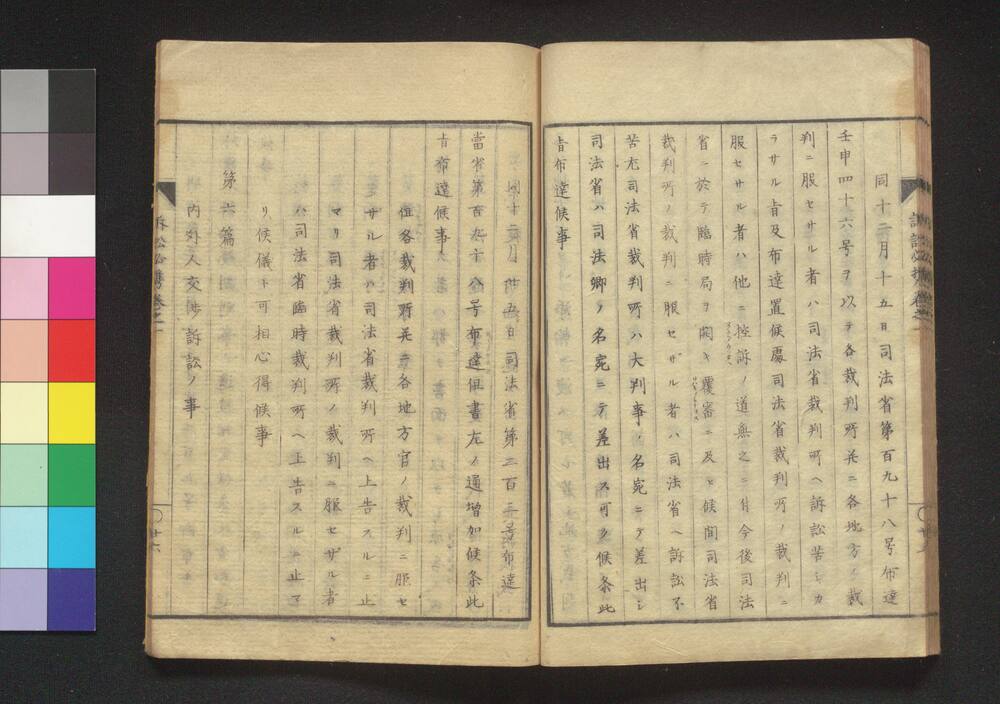 同十二月十五日司法省第百九十八号布達
壬申四十六号ヲ以テ各裁判所并ニ各地方ノ裁
判ニ服セサル者ハ司法省裁判所ヘ訴訟苦シカ
ラサル旨及布達置候處司法省裁判所ノ裁判ニ
服セサル者ハ他ニ控訴ノ道無之ニ付今後司法
省ニ於テ臨時局ヲ開キ覆審ニ及ヒ候間司法省
裁判所ノ裁判ニ服セザル者ハ司法省ヘ訴訟不
苦尤司法省裁判所ハ大判事ノ名宛ニテ差出シ
司法省ハ司法卿ノ名宛ニテ差出ス可ク候条此
旨布達候事
同十二月廿五日司法省第二百三号布達
當省第百九十八号布達但書左ノ通増加候条此
旨布達候事
但各裁判所并ニ各地方官ノ裁判ニ服セ
サル者ハ司法省裁判所ヘ上告スルニ止
マリ司法省裁判所ノ裁判ニ服セザル者
ハ司法省臨時裁判所ヘ上告スルニ止マ
リ候儀ト可相心得候事
第六篇
内外人交渉訴訟ノ事
訴訟必携巻之一
廿六